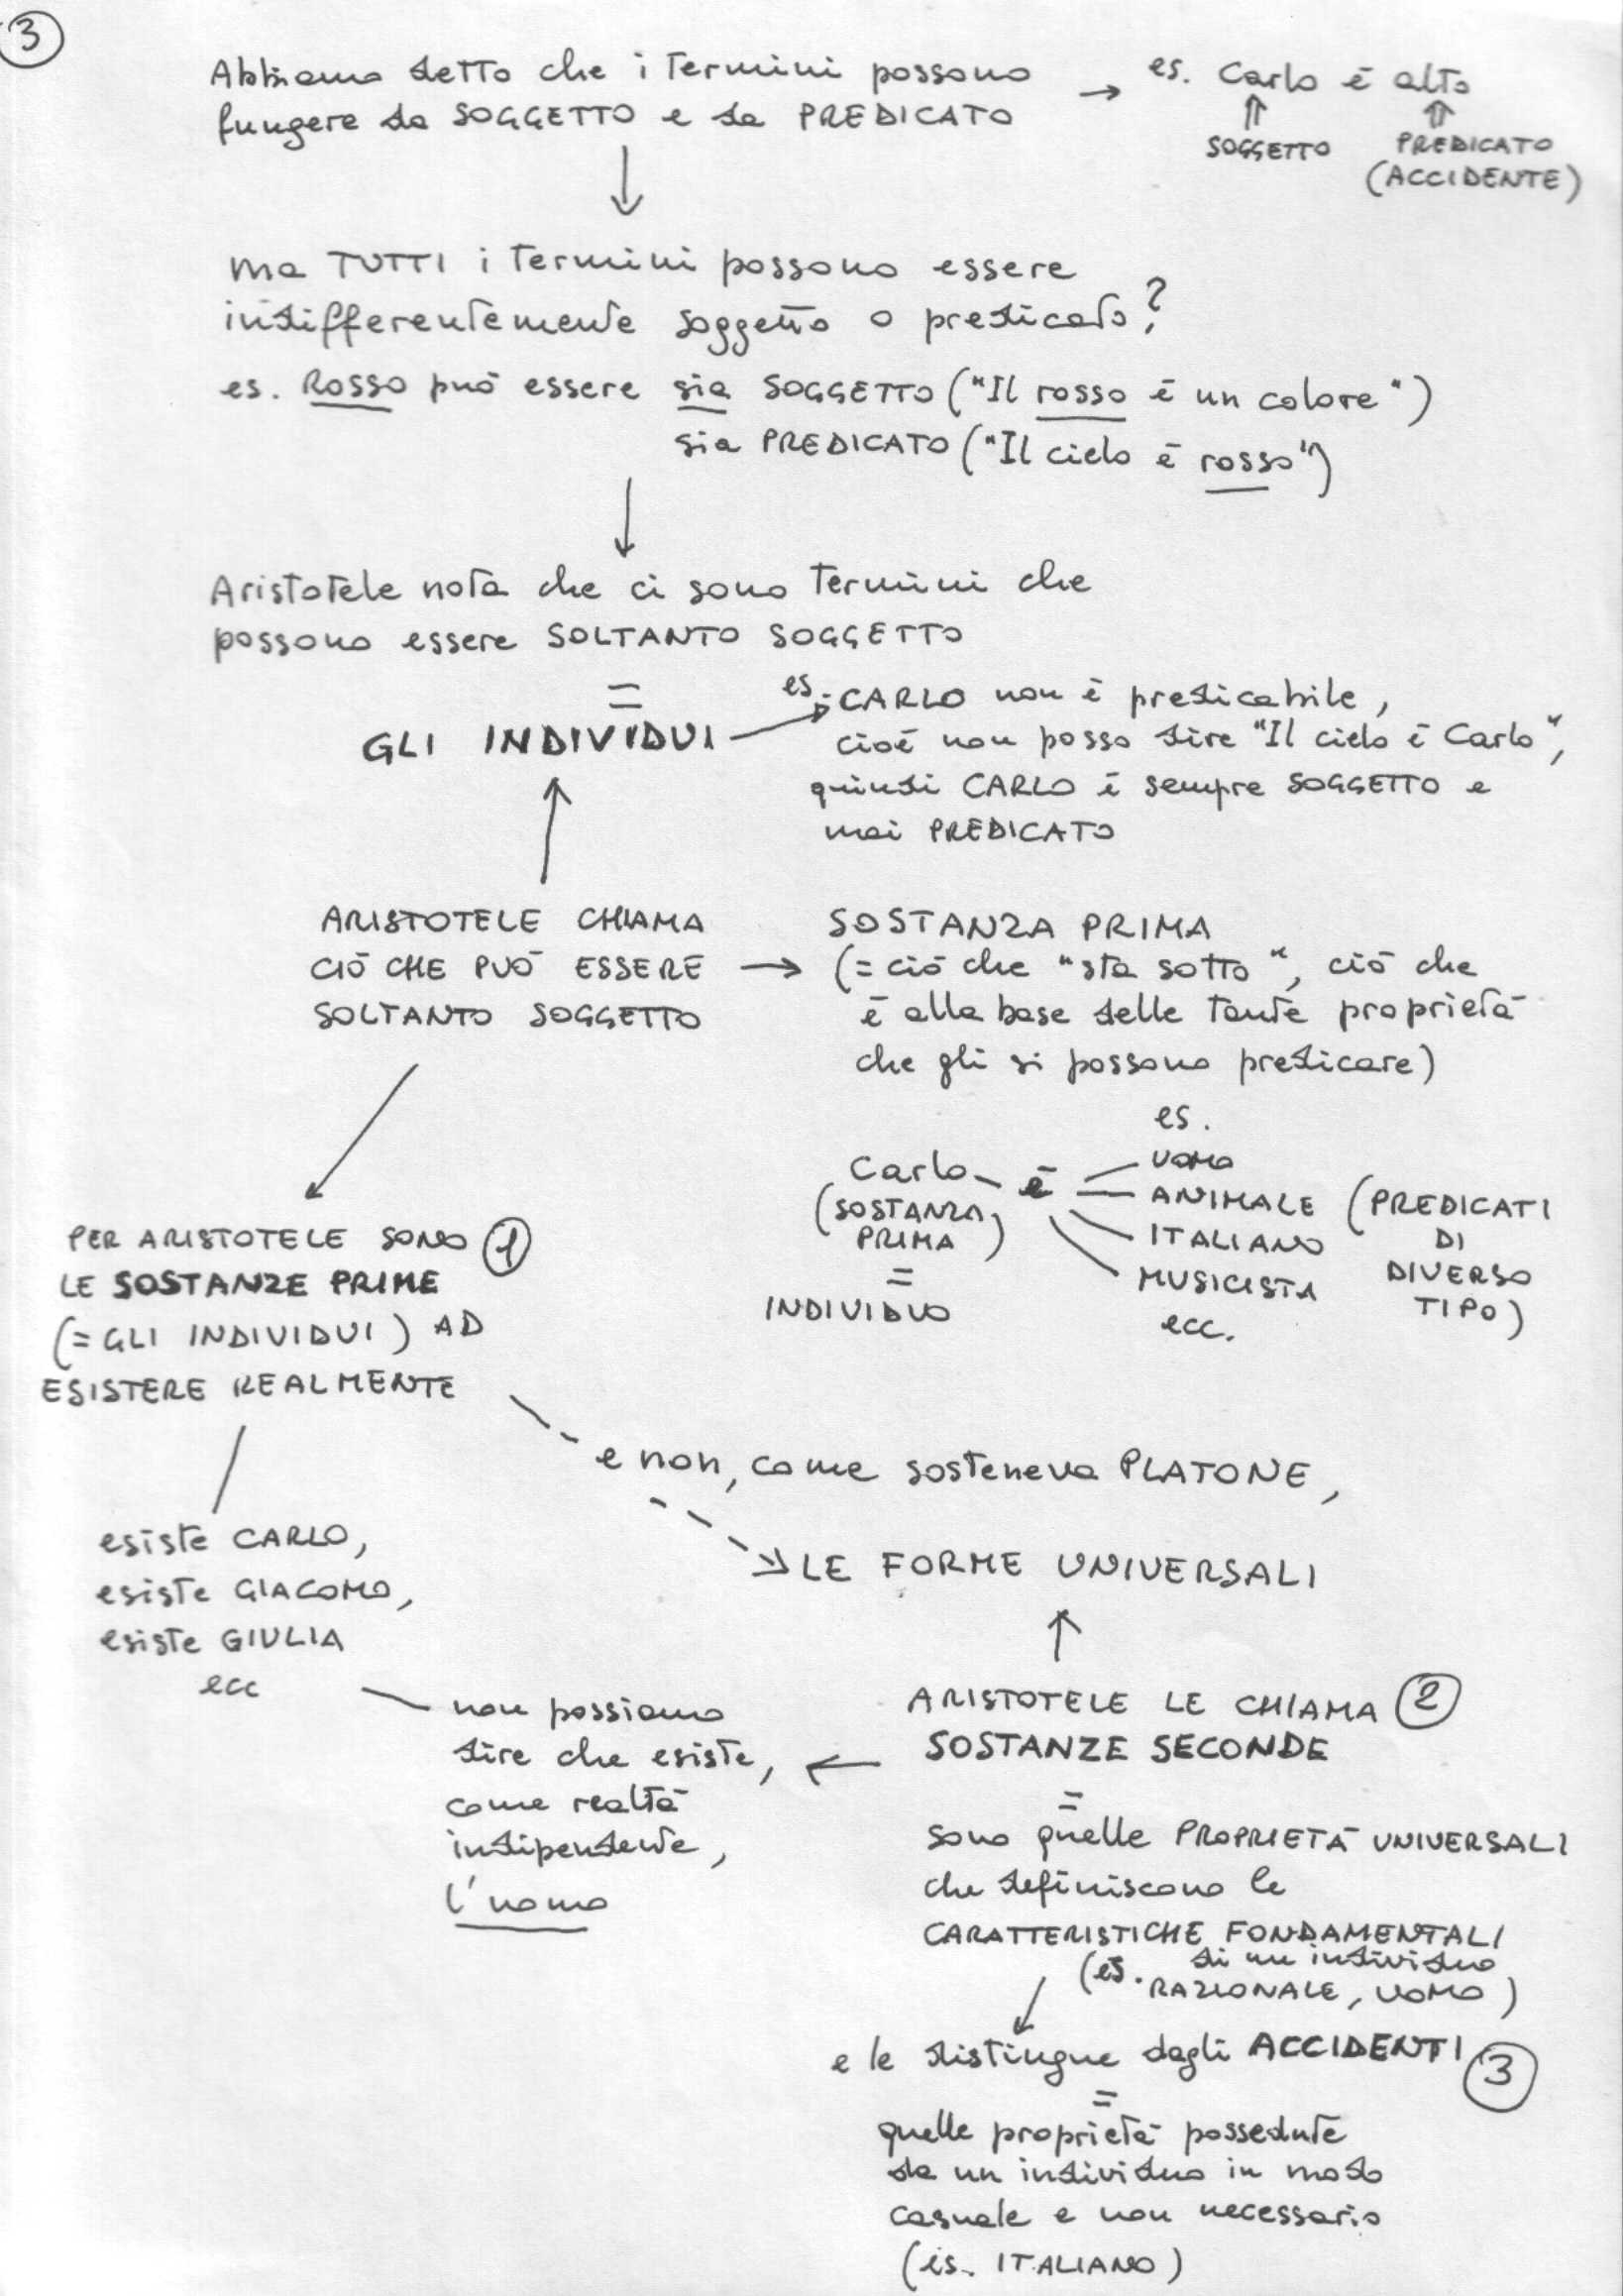 3
Abbiamo detto che i termini possono
fungere da SOGGETTO e da PREDICATO
→ es. Carlo è alto
⇑ ⇑
SOGGETTO PREDICATO
(ACCIDENTE)
↓
Ma TUTTI i termini possono essere
indifferentemente soggetto o predicato?
es. ROSSO può essere sia SOGGETTO ("Il rosso è un colore")
sia PREDICATO ("Il cielo è rosso")
↓
Aristotele nota che ci sono termini che
possono essere SOLTANTO SOGGETTO
=
GLI INDIVIDUI
es. CARLO non è predicabile,
cioè non posso dire "Il cielo è Carlo",
quindi CARLO è sempre SOGGETTO e
mai PREDICATO
ARISTOTELE CHIAMA
CIÒ CHE PUÒ ESSERE
SOLTANTO SOGGETTO
→ SOSTANZA PRIMA
(= ciò che "sta sotto", ciò che
è alla base delle tante proprietà
che gli si possono predicare)
es.
Carlo è
(SOSTANZA
PRIMA)
=
INDIVIDUO
UOMO
ANIMALE
ITALIANO
MUSICISTA
ecc.
(PREDICATI
DI
DIVERSO
TIPO)
PER ARISTOTELE SONO 1
LE SOSTANZE PRIME
(= GLI INDIVIDUI) AD
ESISTERE REALMENTE
e non, come sosteneva PLATONE,
LE FORME UNIVERSALI
esiste CARLO,
esiste GIACOMO,
esiste GIULIA
ecc
non possiamo
dire che esiste,
come realtà
indipendente,
l'uomo
ARISTOTELE LE CHIAMA 2
SOSTANZE SECONDE
=
sono quelle PROPRIETÀ UNIVERSALI
che definiscono le
CARATTERISTICHE FONDAMENTALI
di un individuo
(es. RAZIONALE, UOMO)
e le distingue dagli ACCIDENTI 3
=
quelle proprietà possedute
da un individuo in modo
casuale e non necessario
(es. ITALIANO)